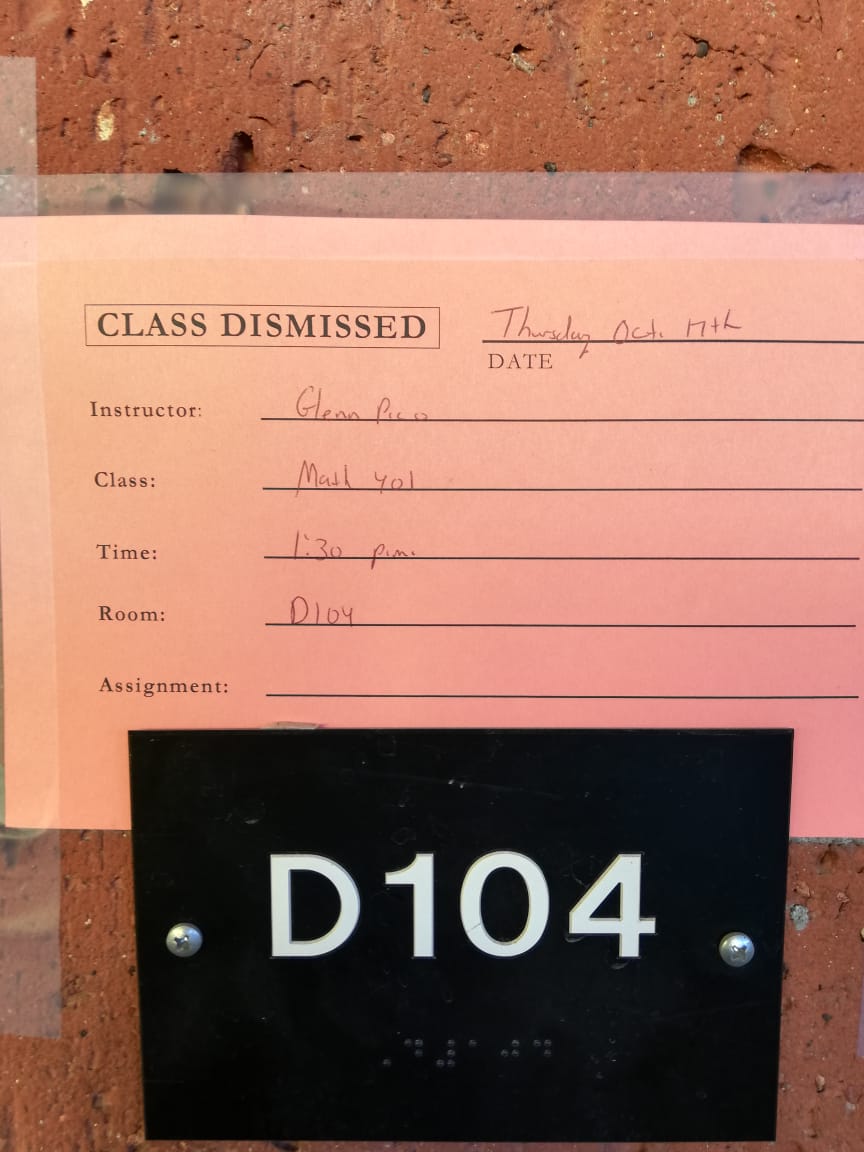 CLASS DISMISSED Thursday Oct. 17th
DATE
Instructor: Glenn Pico
Class: Math 401
Time: 1:30 p.m.
Room: D104
Assignment:
D104